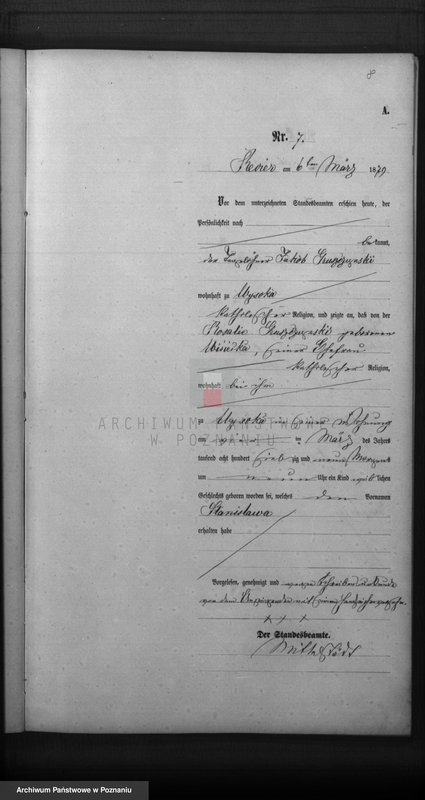 8
A.
Nr. 7.
am 6ten März 1879
Vor dem unterzeichneten Standesbeamten erschien heute, der
Persönlichkeit nach
bekannt,
der Tagelöhner Jakob
wohnhaft zu Wysoka
katholischer Religion, und zeigte an, daß von der
Rosalie geborenen
seiner Ehefrau
katholischer Religion,
wohnhaft bei ihm
ARCHIWUM PAŃSTWOWE
W POZNANIU
zu Wysoka in seiner Wohnung
am ten März des Jahres
tausend acht hundert siebzig und neun
um neun Uhr ein Kind weiblichen
Geschlechts geboren worden sei, welches den Vornamen
Stanislawa
erhalten habe
Vorgelesen, genehmigt und wegen
von dem
+ + +
Der Standesbeamte.
Archiwum Państwowe w Poznaniu